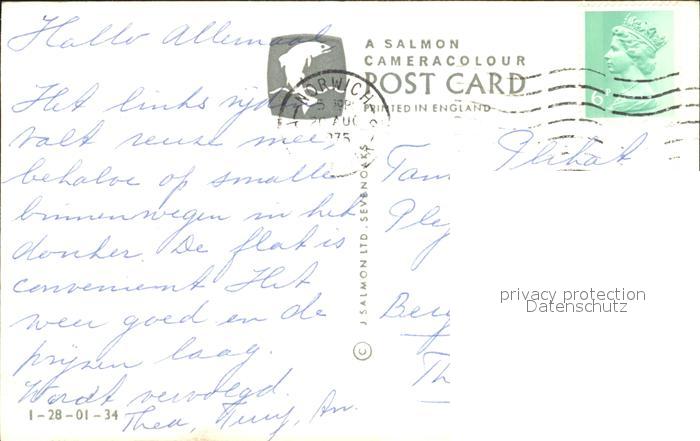 Hallo Allemaal
Het links rijden
valt reuze mee,
behalve op smalle
binnenwegen in het
donker. De flat is
convenient Het
weer goed en de
prijzen laag.
Wordt vervolgd.
Thea,
1-28-01-34
A SALMON
CAMERACOLOUR
POST CARD
PRINTED IN ENGLAND
NORWICH
AUG
1975
J. SALMON LTD., SEVENOAKS ©
6P
Fam
Pley
Berg
Th
privacy protection
Datenschutz